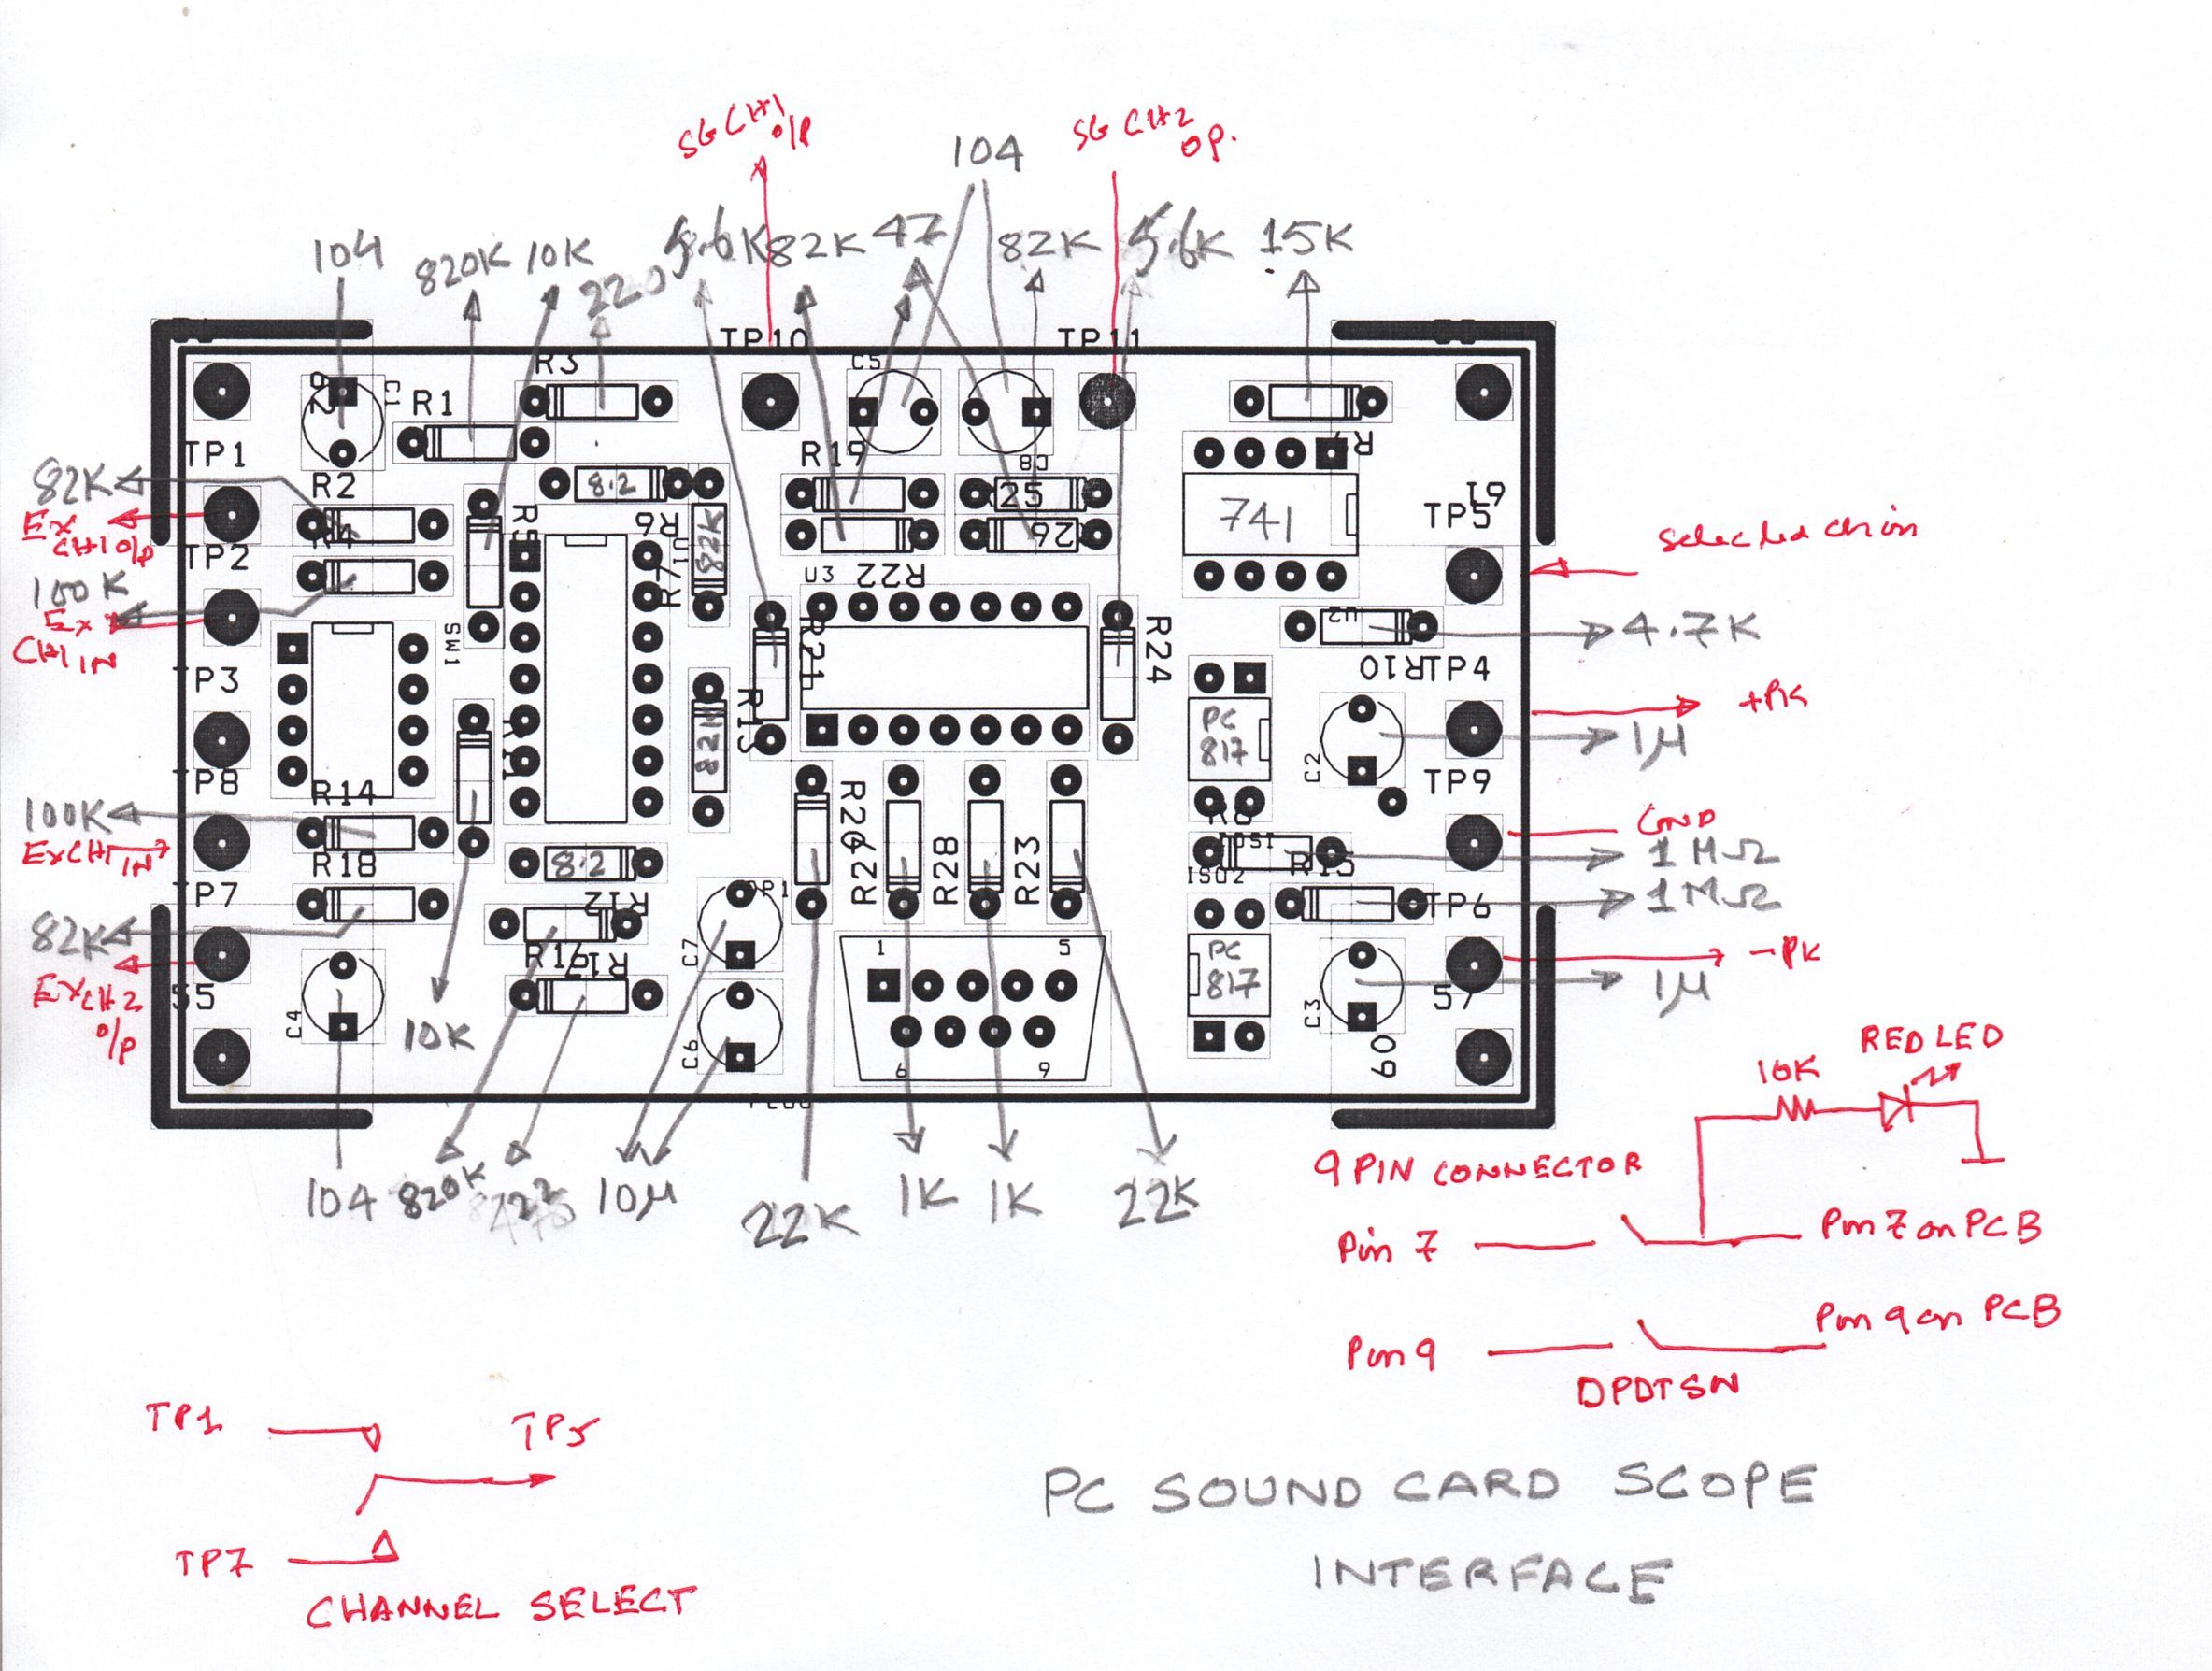 SG CH1 o/p
104
SG CH2 op.
104
820K
10K
220
5.6K
82K
47
82K
5.6K
15K
TP10
TP11
R3
C5
C1
R1
R19
C8
R7
TP1
82K
R2
8.2
25
61
TP5
Ex CH1 o/p
R4
R5
R6
U1
82K
26
741
Selected ch in
TP2
100K
Ex
CH1 IN
U3
R22
SW1
R21
R24
U2
4.7K
R10
TP4
TP3
R11
R13
PC
817
+PK
1µ
C2
TP8
TP9
R14
100K
ExCH1 IN
R20
R28
R23
R8
GND
1MΩ
8.2
R18
ISO2
R15
1MΩ
TP7
R12
TP6
82K
C7
1
5
PC
817
-PK
Ex CH2
o/p
55
R16
R17
57
1µ
C4
C6
6
9
C3
60
10K
RED LED
10K
104
820K
10µ
22K
1K
1K
22K
9 PIN CONNECTOR
Pin 7
Pin 7 on PCB
Pin 9
Pin 9 on PCB
DPDT SW
TP1
TP5
TP7
CHANNEL SELECT
PC SOUND CARD SCOPE
INTERFACE